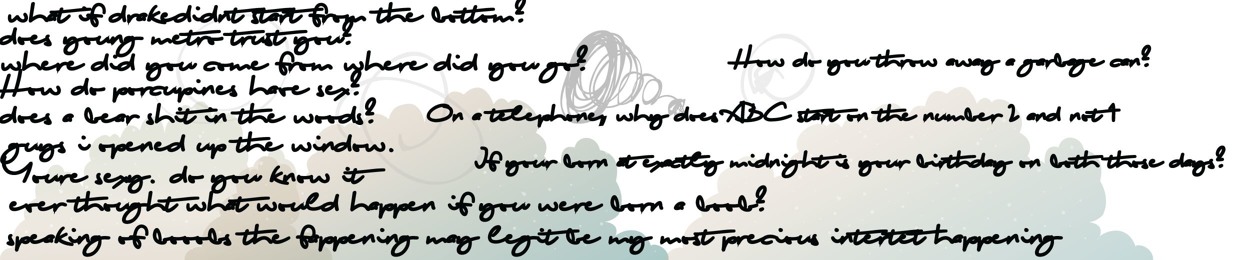 what if drake didnt start from the bottom?
does young metro trust you?
where did you come from where did you go?
How do you throw away a garbage can?
How do porcupines have sex?
does a bear shit in the woods?
On a telephone, why does ABC start on the number 2 and not 1
guys i opened up the window.
If your born at exactly midnight is your birthday on both those days?
Youre sexy. do you know it
ever thought what would happen if you were born a boob?
speaking of boobs the fappening may legit be my most precious internet happening